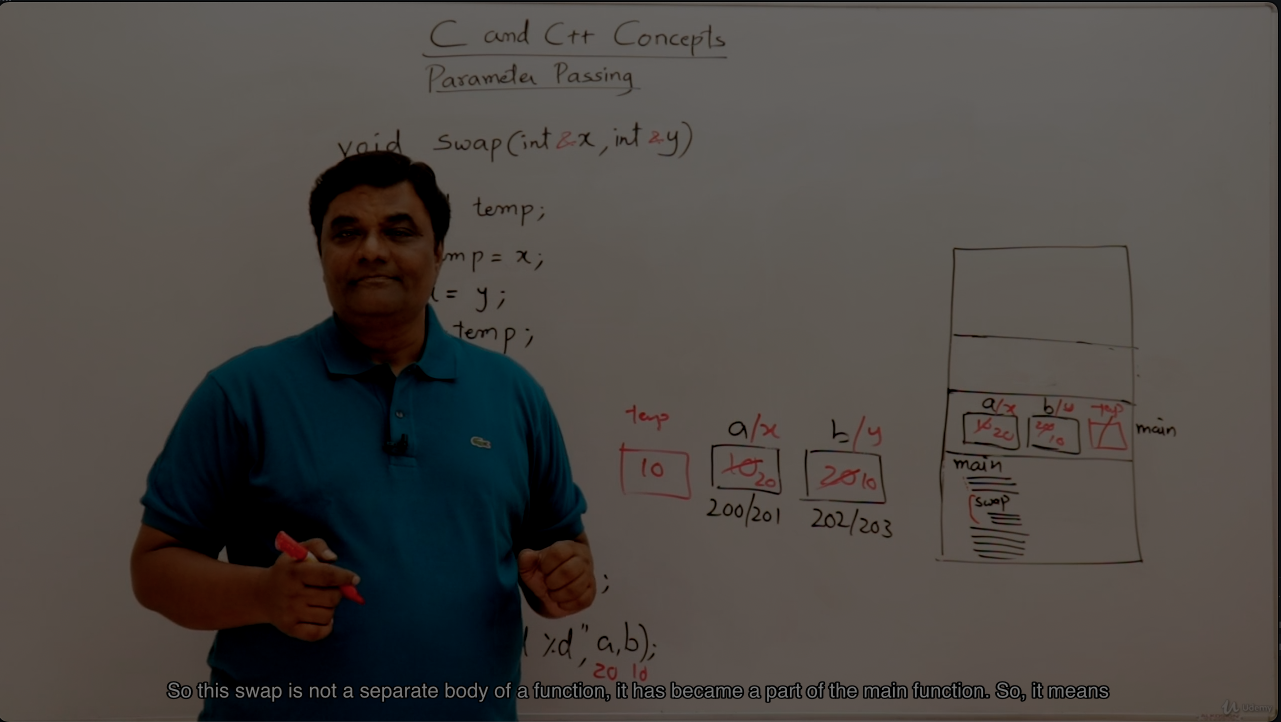 C and C++ Concepts
Parameter Passing
void swap(int &x, int &y)
temp;
mp = x;
= y;
temp;
temp a/x b/y
10 10 20 20 10
200/201 202/203
a/x b/y temp
10 20 20 10
main
main
swap
;
%d", a,b);
20 10
So this swap is not a separate body of a function, it has became a part of the main function. So, it means
Udemy